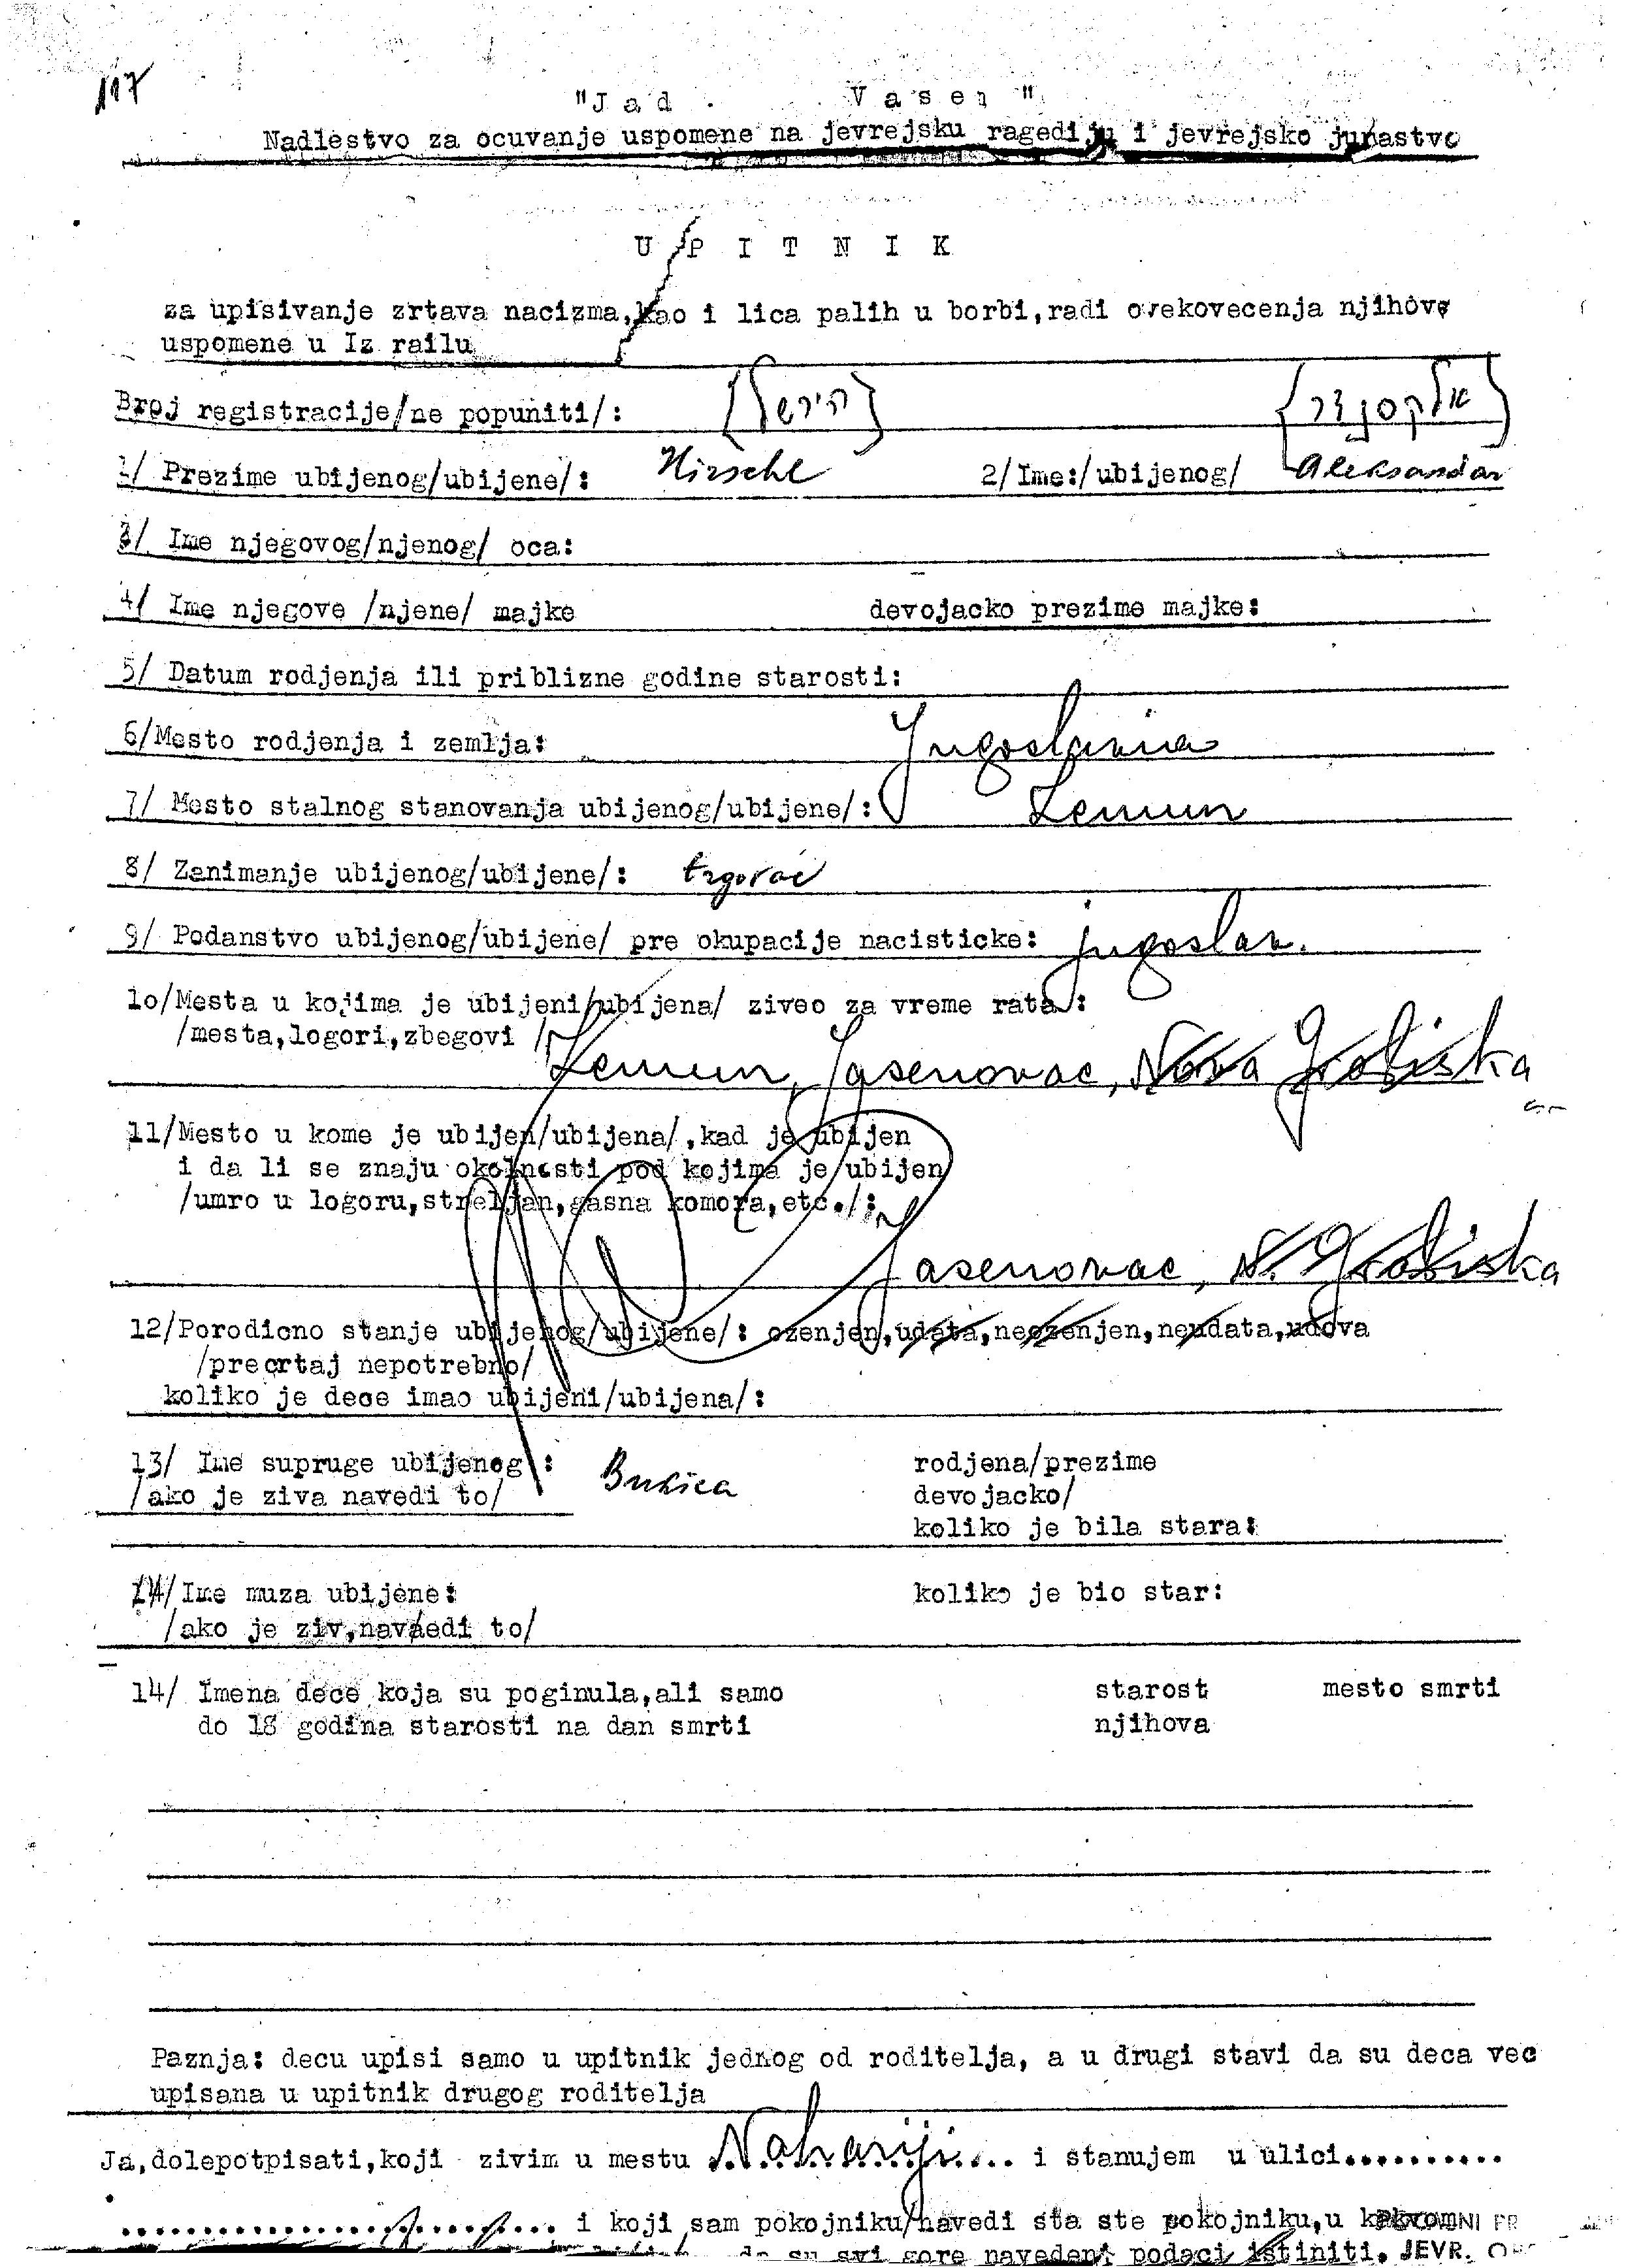 117
"Jad Vasem"
Nadlestvo za ocuvanje uspomene na jevrejsku ragediju i jevrejsko junastvo
U P I T N I K
za upisivanje zrtava nacizma,kao i lica palih u borbi,radi ovekovecenja njihove
uspomene u Iz railu
Broj registracije/ne popuniti/: [הירשל] [אלכסנדר]
1/ Prezime ubijenog/ubijene/: Hirschl 2/Ime:/ubijenog/ Aleksandar
3/ Ime njegovog/njenog/ oca:
4/ Ime njegove /njene/ majke devojacko prezime majke:
5/ Datum rodjenja ili priblizne godine starosti:
6/Mesto rodjenja i zemlja: Jugoslavia
7/ Mesto stalnog stanovanja ubijenog/ubijene/: Zemun
8/ Zanimanje ubijenog/ubijene/: trgovac
9/ Podanstvo ubijenog/ubijene/ pre okupacije nacisticke: jugoslav.
1o/Mesta u kojima je ubijeni/ubijena/ ziveo za vreme rata/:
/mesta,logori,zbegovi /
Zemun, Jasenovac, Nova Gradiska
11/Mesto u kome je ubijen/ubijena/,kad je ubijen
i da li se znaju okolnosti pod kojima je/ubijen/
/umro u logoru,streljan,gasna komora,etc./:
Jasenovac, N. Gradiska
12/Porodicno stanje ubijenog/ubijene/: ozenjen,udata,neozenjen,neudata,udova
/precrtaj nepotrebno/
koliko je dece imao ubijeni/ubijena/:
13/ Ime supruge ubijenog : Bukica rodjena/prezime
/ako je ziva navedi to/ devojacko/
koliko je bila stara:
14/Ime muza ubijene: koliko je bio star:
/ako je ziv,navaedi to/
14/ Imena dece koja su poginula,ali samo starost mesto smrti
do 18 godina starosti na dan smrti njihova
Paznja: decu upisi samo u upitnik jednog od roditelja, a u drugi stavi da su deca vec
upisana u upitnik drugog roditelja
Ja,dolepotpisati,koji zivim u mestu Nahariji.... i stanujem u ulici..........
.......................... i koji sam pokojniku/navedi sta ste pokojniku,u kakvom
da su svi gore navedeni podaci istiniti. JEVR.